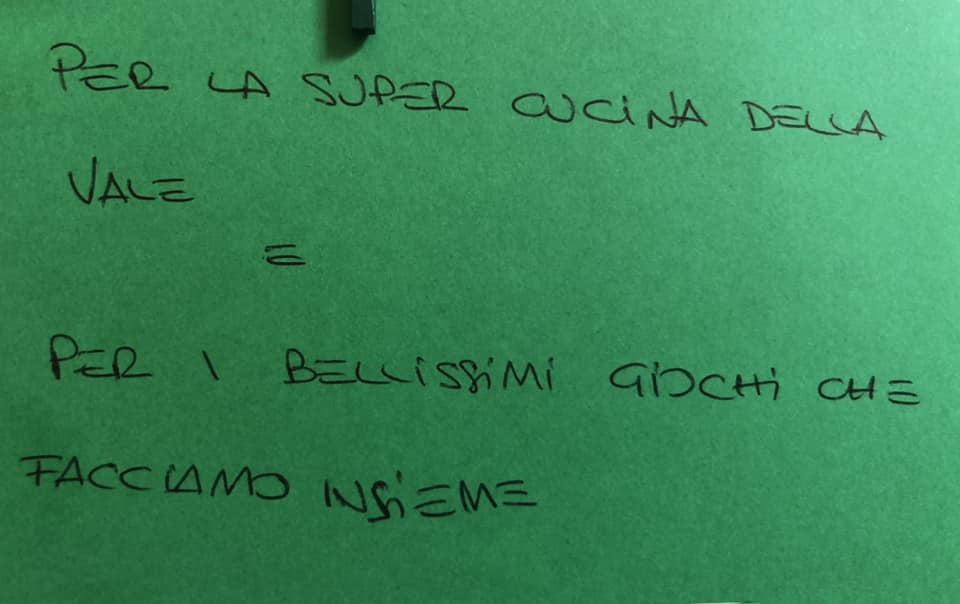 PER LA SUPER CUCINA DELLA
VALE
E
PER I BELLISSIMI GIOCHI CHE
FACCIAMO INSIEME